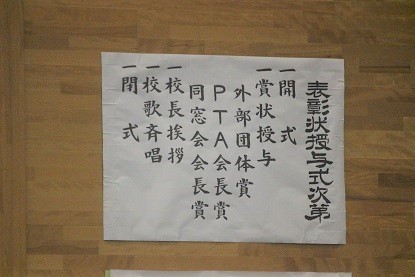 表彰状授与式次第
一開式
一賞状授与
外部団体賞
PTA会長賞
同窓会会長賞
一校長挨拶
一校歌斉唱
一閉式